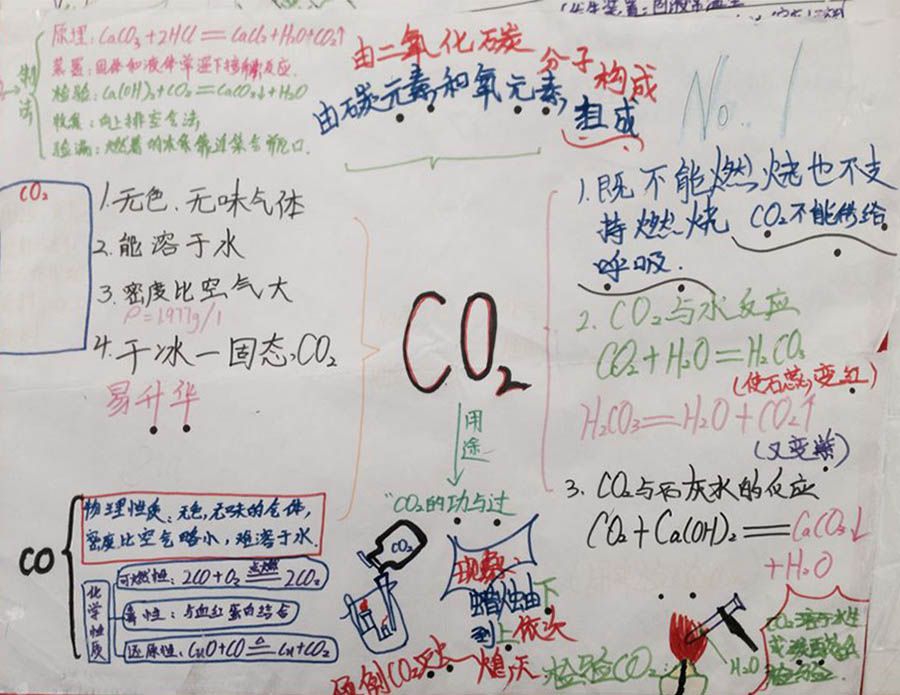 制法
原理：CaCO3+2HCl=CaCl2+H2O+CO2↑
装置：固体和液体常温下接触反应.
检验：Ca(OH)2+CO2=CaCO3↓+H2O
收集：向上排空气法
验满：燃着的木条靠近集气瓶口.
由二氧化碳分子构成
由碳元素和氧元素，组成
No. 1
CO2
1.无色、无味气体
2.能溶于水
3.密度比空气大
ρ=1.977g/l
4.干冰—固态CO2
易升华
CO2
用途
CO2的功与过
1.既不能燃烧也不支
持燃烧 CO2不能供给
呼吸.
2.CO2与水反应
CO2+H2O=H2CO3
(使石蕊变红)
H2CO3=H2O+CO2↑
(又变紫)
3.CO2与石灰水的反应
CO2+Ca(OH)2=CaCO3↓
+H2O
CO
物理性质：无色，无味的气体，
密度比空气略小，难溶于水.
化学性质
可燃性：2CO+O2 点燃 2CO2
毒性：与血红蛋白结合
还原性：CuO+CO △ Cu+CO2
CO2
现象：
蜡烛由下
到上依次
熄灭
检验CO2：
H2O
CO2溶于水生